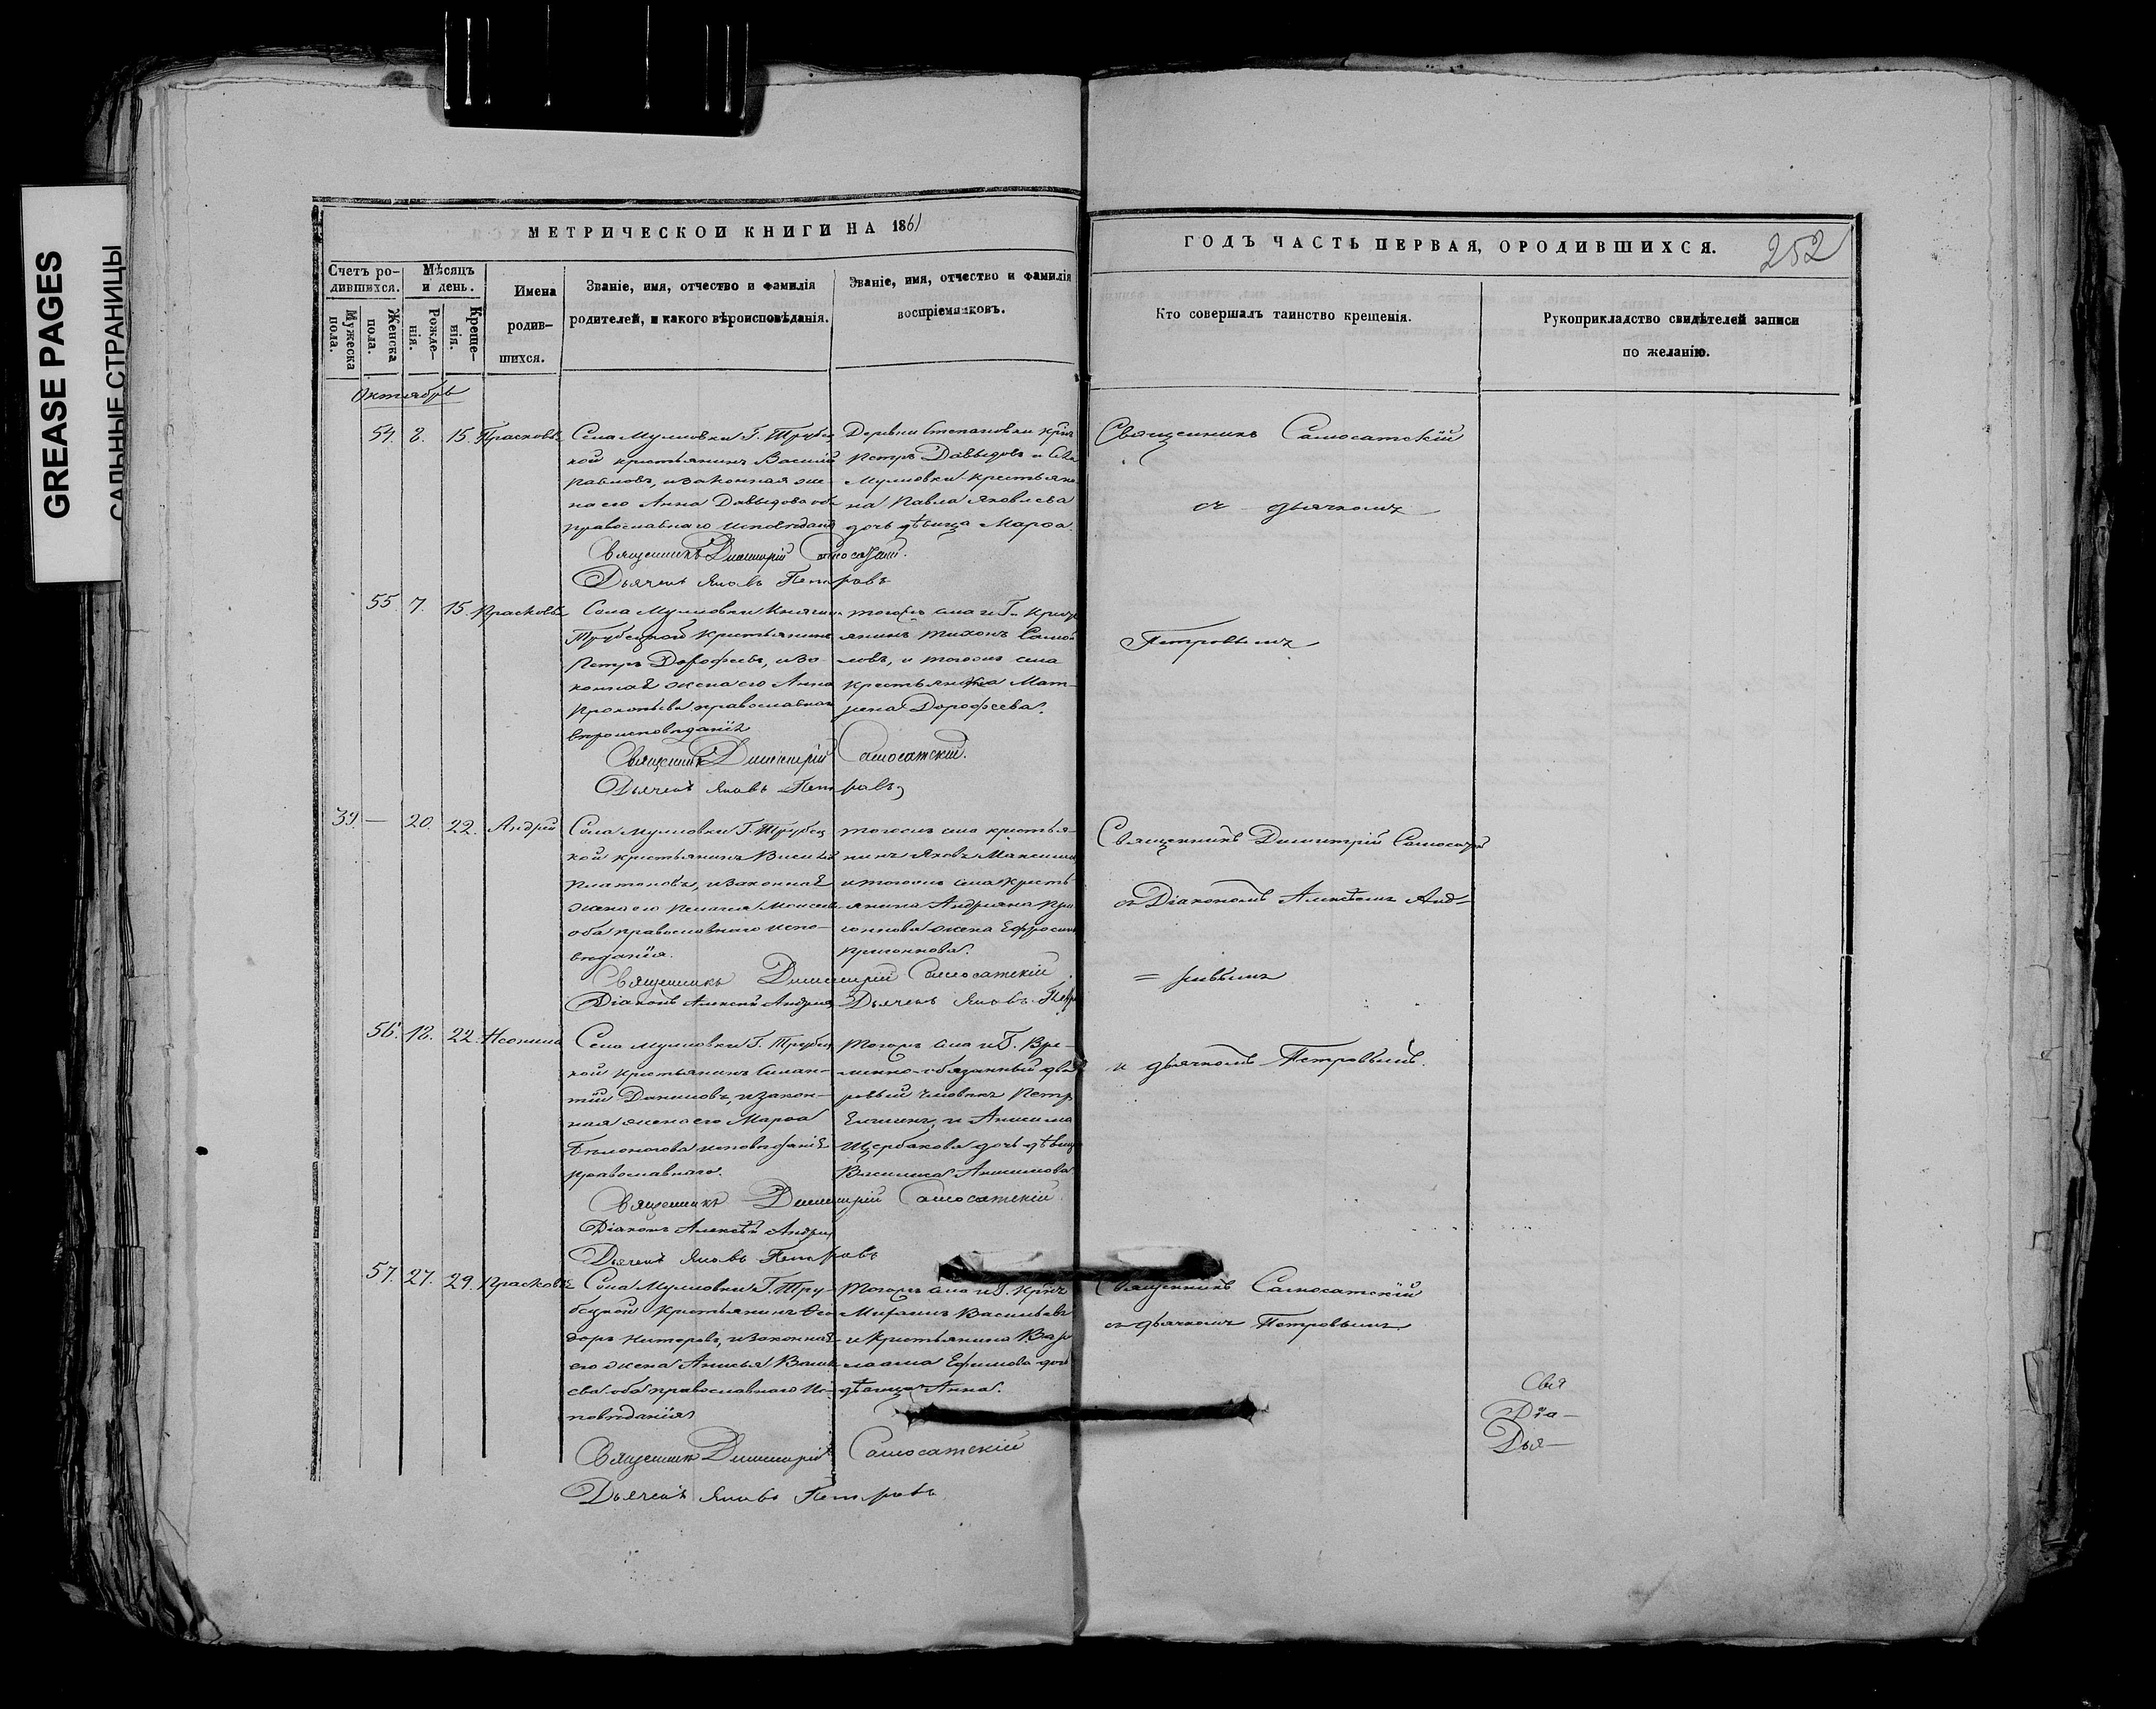 GREASE PAGES
САЛЬНЫЕ СТРАНИЦЫ
МЕТРИЧЕСКОЙ КНИГИ НА 1861
ГОДЪ ЧАСТЬ ПЕРВАЯ, О РОДИВШИХСЯ.
252
Счетъ ро-
дившихся.
Мужеска пола.
Женска пола.
Мѣсяцъ
и день.
Рожде-
нія.
Креще-
нія.
Имена
родив-
шихся.
Званіе, имя, отчество и фамилія
родителей, и какого вѣроисповѣданія.
Званіе, имя, отчество и фамилія
воспріемниковъ.
Кто совершалъ таинство крещенія.
Рукоприкладство свидѣтелей записи
по желанію.
Октябрь
54. 8. 15. Прасковья
Села Мулловки Г. Трубец
кой крестьянинъ Василій
Павловъ, и законная же-
на его Анна Давыдова оба
православнаго исповѣданія
Деревни Степановки
Петръ Давыдовъ и Села
Мулловки крестьяни
на Павла Яковлева
дочь дѣвица Марѳа.
Священникъ Димитрій Самосатскій.
Дьячекъ Яковъ Петровъ
Священникъ Самосатскій
съ дьячкомъ
Петровымъ
55. 7. 15. Прасковья
Села Мулловки Княгини
Трубецкой Крестьянинъ
Петръ Дорофеевъ, и за-
конная жена его Анна
Прокопьева православнаго
вѣроисповѣданія
тогожъ села и Г.
янинъ Тихонъ
ловъ, и тогожъ села
крестьянка Мат-
рена Дорофеева.
Священникъ Димитрій Самосатскій.
Дьячекъ Яковъ Петровъ
39. — 20. 22. Андрей
Села Мулловки Г. Трубец
кой крестьянинъ Василій
Платоновъ, и законная
жена его Пелагея Моисеева
оба православнаго испо-
вѣданія.
тогожъ села крестья-
нинъ Яковъ Максимовъ
и тогожъ села кресть
янина Андріана
жена Ефросинья
Священникъ Димитрій Самосатскій
Діаконъ Алексѣй Андреевъ Дьячекъ Яковъ Петровъ
Священникъ Димитрій Самосатскій
съ Діакономъ Алексѣемъ Анд-
= реевымъ
и дьячкомъ Петровымъ.
56. 18. 22.
Села Мулловки Г. Трубец
кой крестьянинъ
Даниловъ, и закон-
ная жена его Марѳа
исповѣданія
православнаго.
Тогожъ села и Г. Вре-
менно-обязанный дво
ровый человѣкъ Петръ
и Анисима
Щербакова дочь дѣвица
Василиса Анисимова
Священникъ Димитрій Самосатскій
Діаконъ Алексѣй Андреевъ
Дьячекъ Яковъ Петровъ
57. 27. 29. Прасковья
Села Мулловки Г. Тру-
бецкой Крестьянинъ Ѳео
доръ и законная
его жена Анисья Василь
ева оба православнаго Ис-
повѣданія
Тогожъ села и Г.
Васильевъ
и Крестьянина Вар
лаама Ефимова дочь
дѣвица Анна.
Священникъ Димитрій Самосатскій
Дьячекъ Яковъ Петровъ
Священникъ Самосатскій
съ дьячкомъ Петровымъ.
Свя
Діа-
Дья-